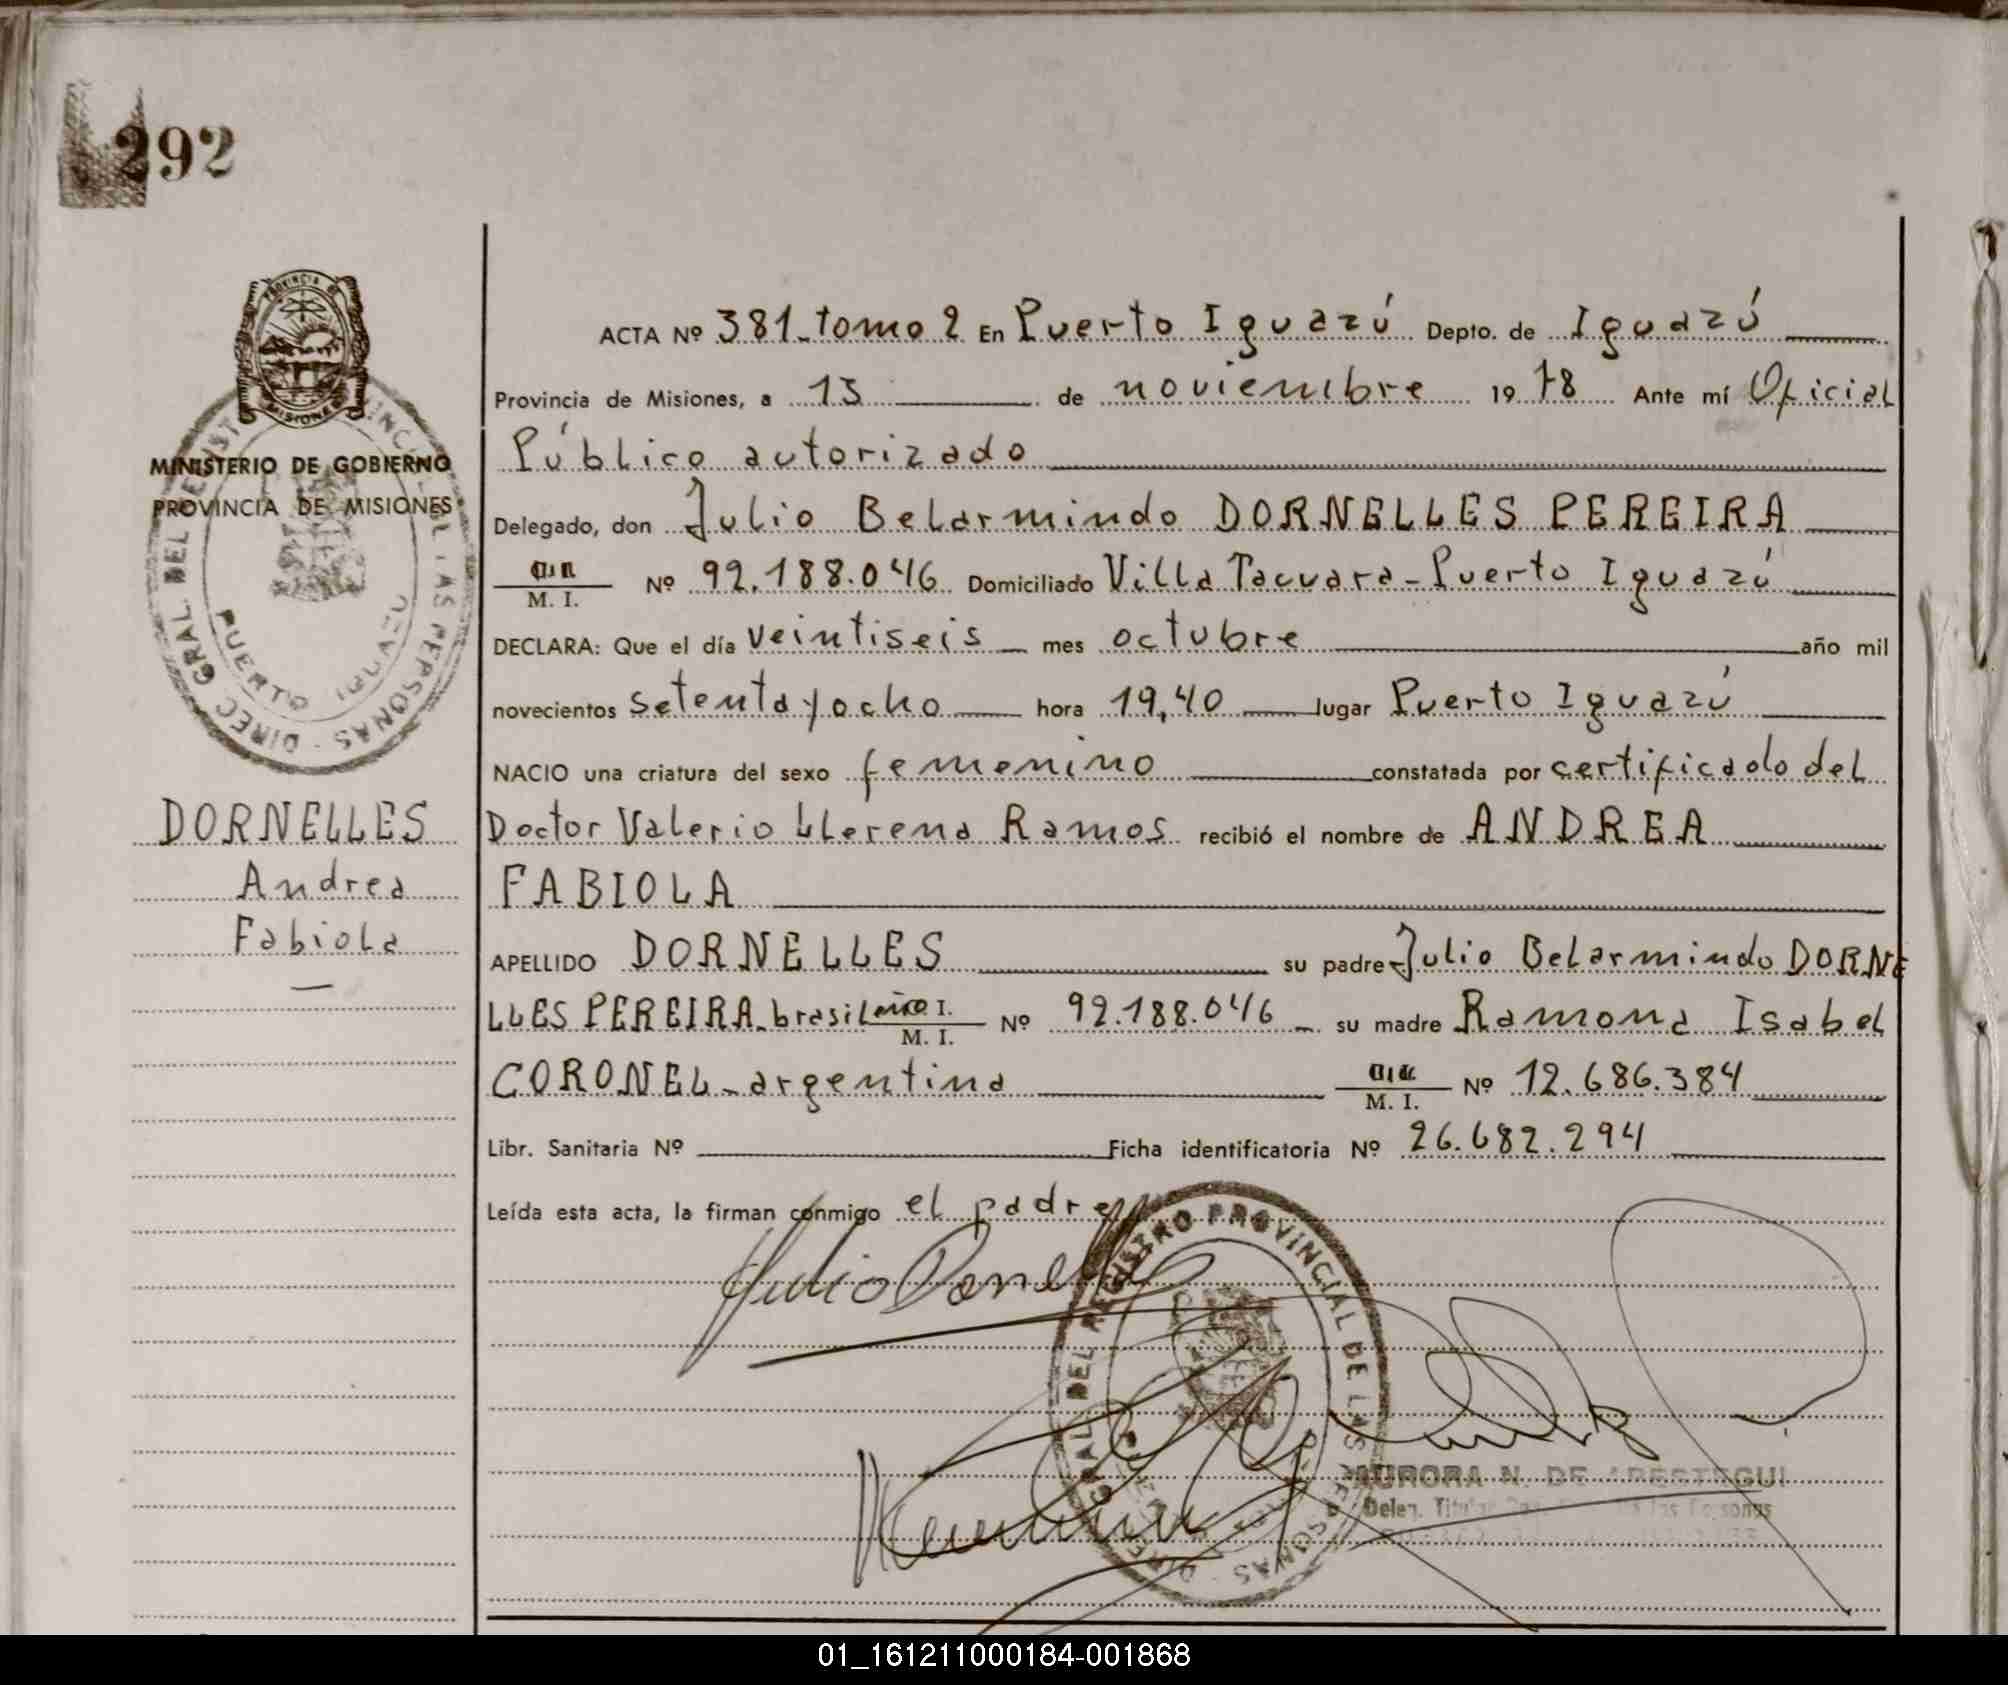 292
PROVINCIA DE
MISIONES
MINISTERIO DE GOBIERNO
PROVINCIA DE MISIONES
PUERTO IGUAZU
DORNELLES
Andrea
Fabiola
ACTA Nº 381-tomo 2 En Puerto Iguazú Depto. de Iguazú
Provincia de Misiones, a 13 de noviembre 1978 Ante mí Oficial
Público autorizado
Delegado, don Julio Belarmindo DORNELLES PEREIRA
M. I. Nº 92.188.046 Domiciliado Villa Tacuara-Puerto Iguazú
DECLARA: Que el día veintiseis mes octubre año mil
novecientos setenta y ocho hora 19,40 lugar Puerto Iguazú
NACIO una criatura del sexo femenino constatada por certificado del
Doctor Valerio Llerena Ramos recibió el nombre de ANDREA
FABIOLA
APELLIDO DORNELLES su padre Julio Belarmindo DORNE
LLES PEREIRA-brasileño M. I. Nº 92.188.046 su madre Ramona Isabel
CORONEL-argentina M. I. Nº 12.686.384
Libr. Sanitaria Nº Ficha identificatoria Nº 26.682.294
Leída esta acta, la firman conmigo el padre
Julio Dornelles
DIREC GRAL DEL REGISTRO PROVINCIAL DE LAS PERSONAS
AURORA N. DE ARESTEGUI
Deleg. Titular las Personas
01_161211000184-001868